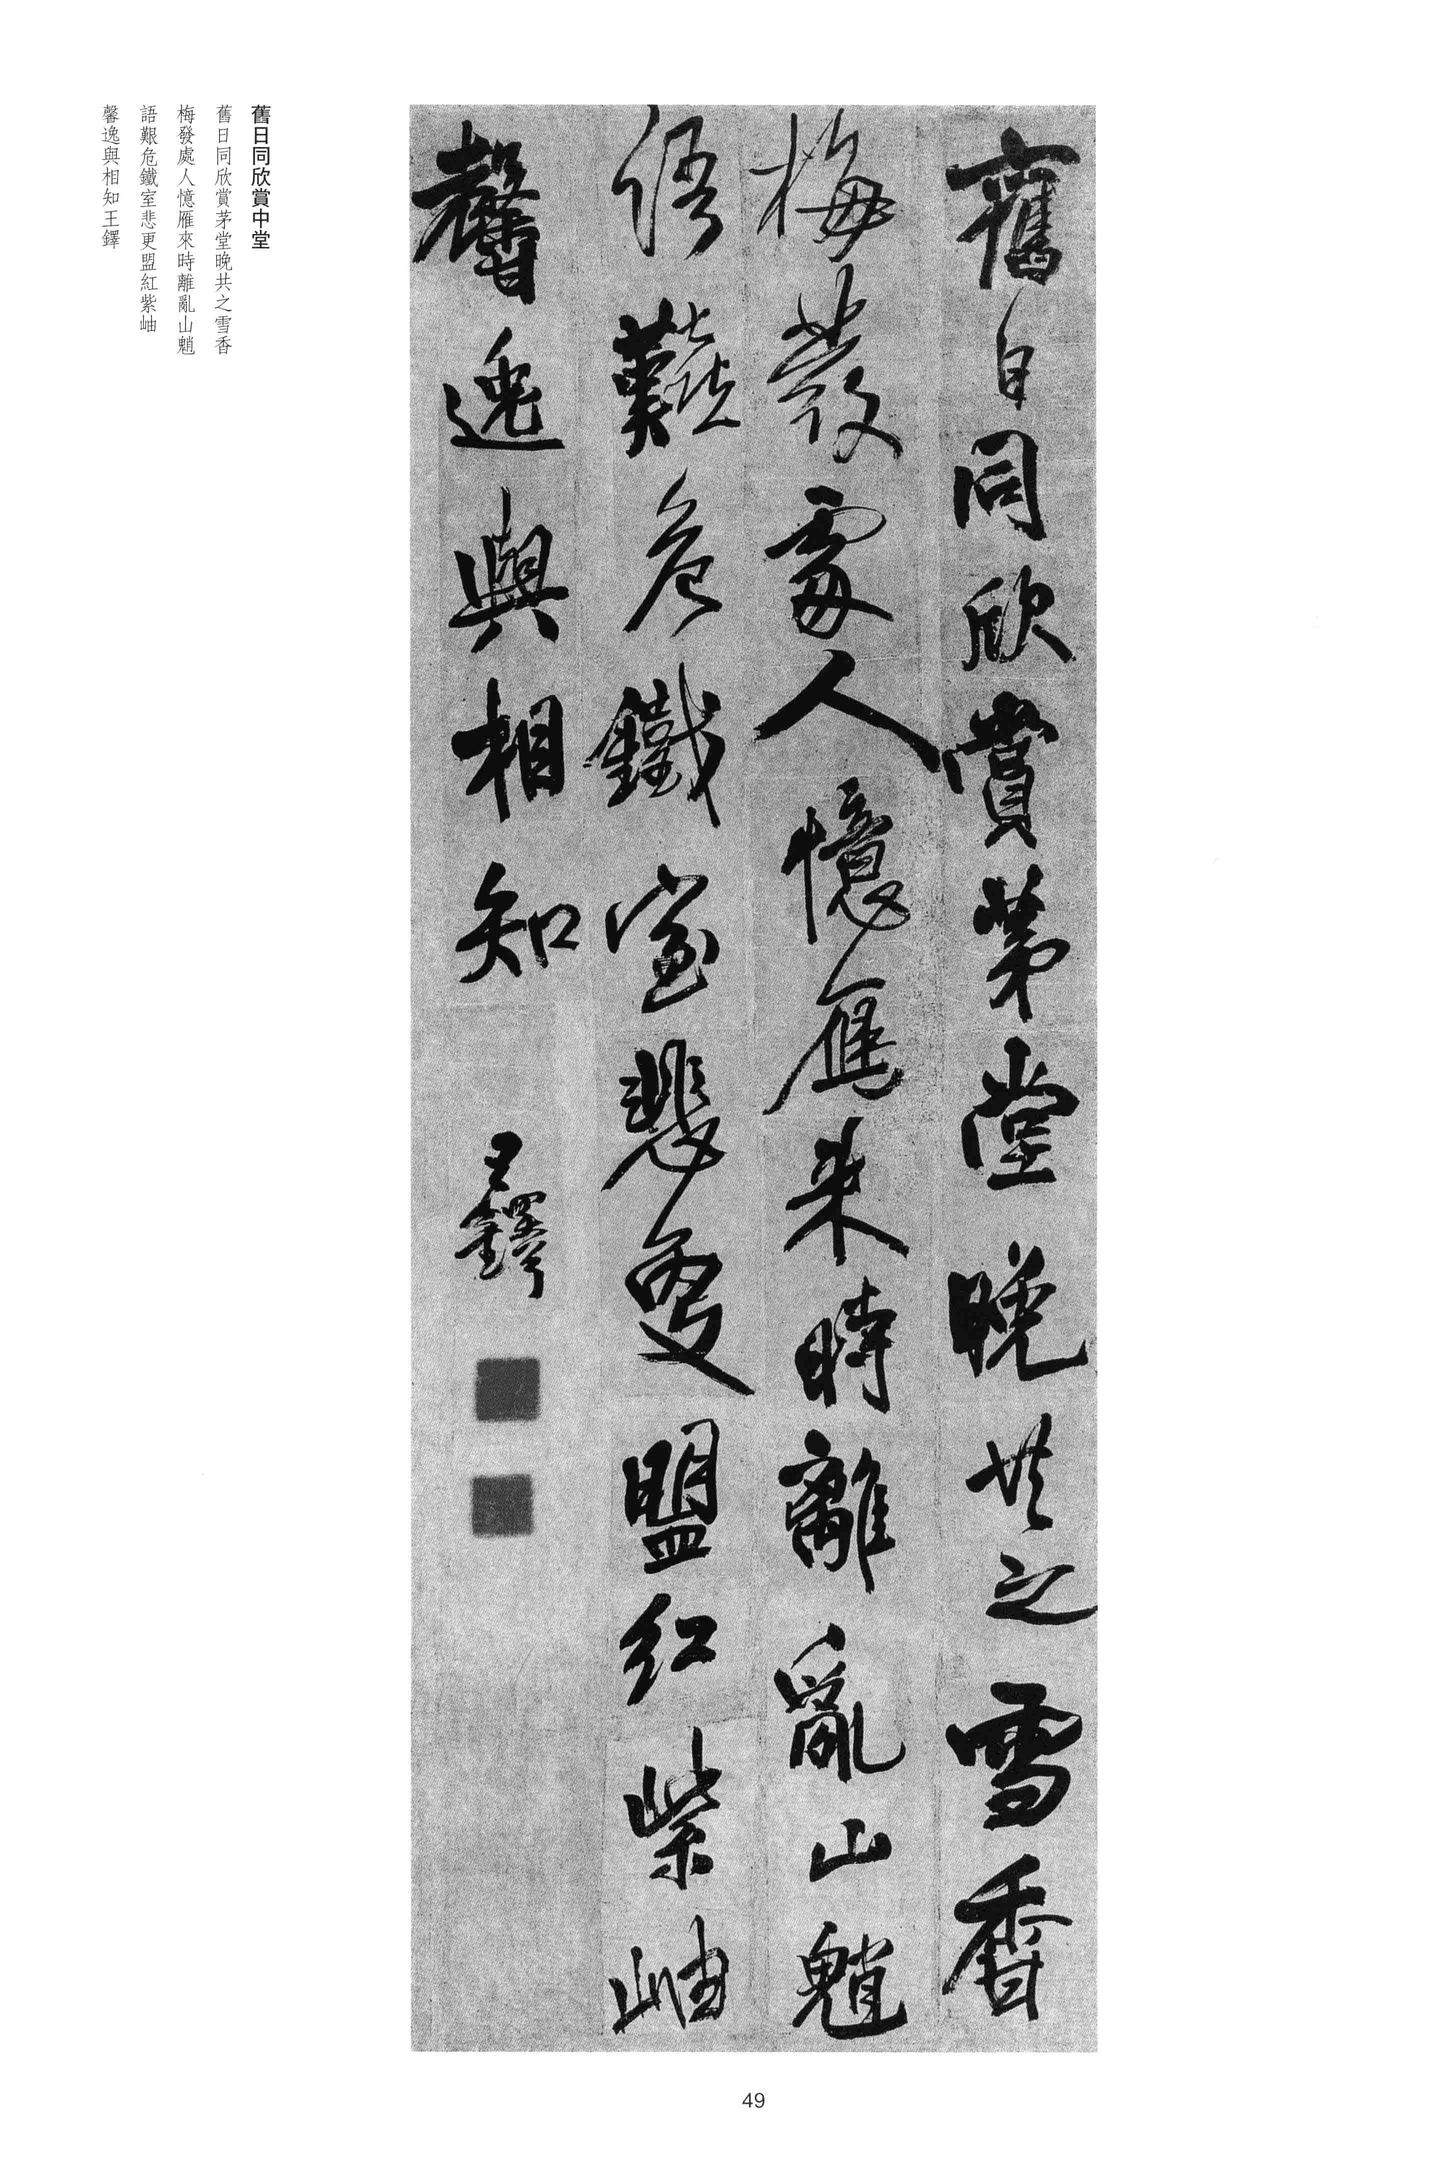 舊日同欣賞茅堂晚共之雪香
梅發處人憶雁來時離亂山魈
語艱危鐵室悲更盟紅紫岫
馨逸與相知
王鐸
舊日同欣賞中堂
舊日同欣賞茅堂晚共之雪香
梅發處人憶雁來時離亂山魈
語艱危鐵室悲更盟紅紫岫
馨逸與相知王鐸
49